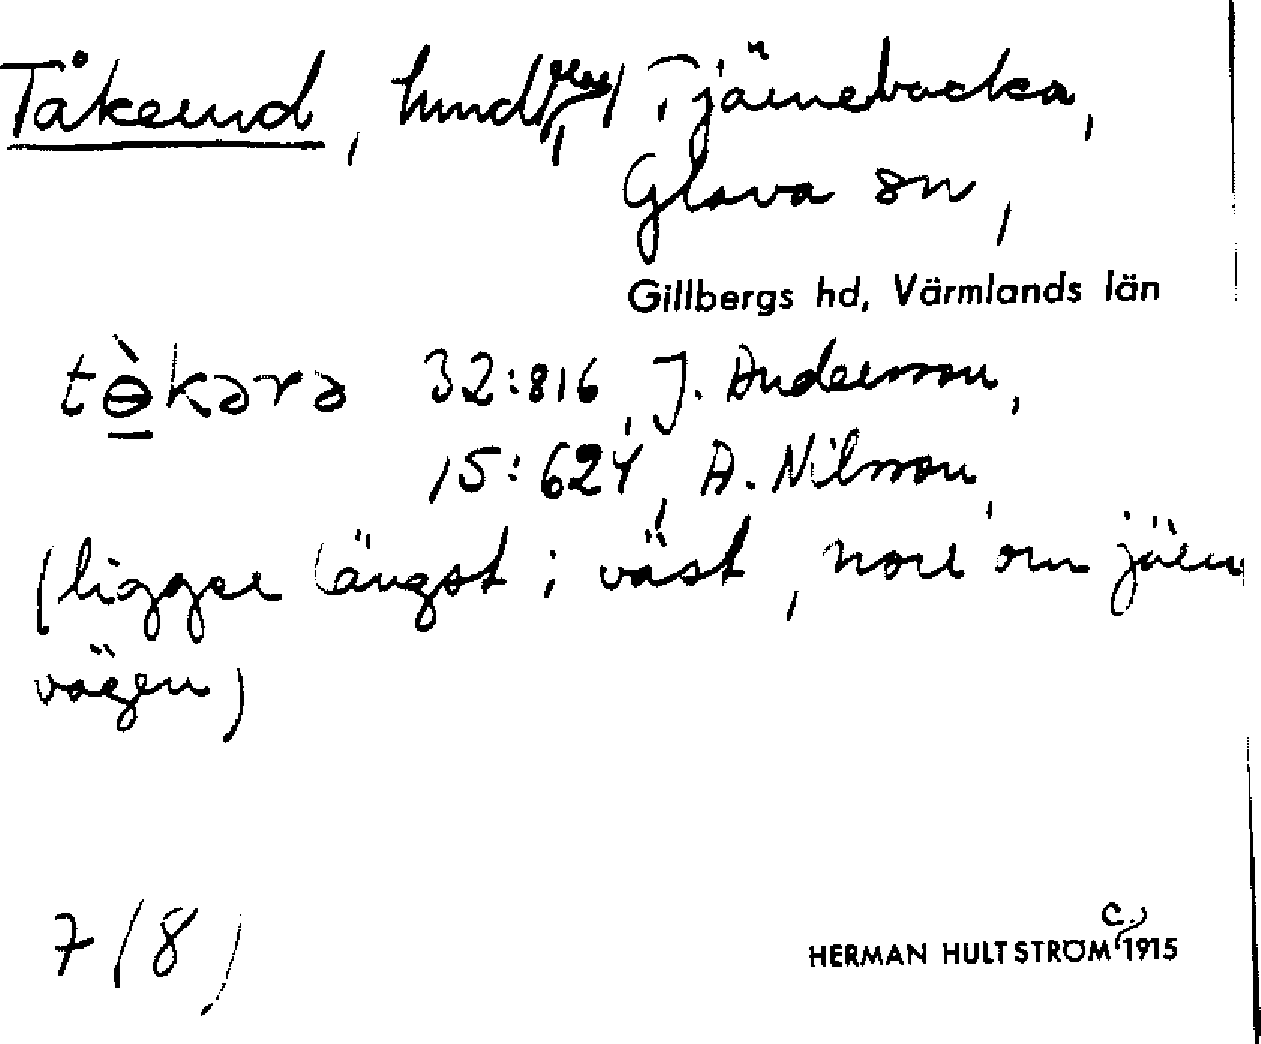 Tåkerud, Tjärnebacka,
Glava sn,
Gillbergs hd, Värmlands län
tɵ̀kərə 32:816, J. Andersson,
15:624, A. Nilsson,
(ligger längst i väst, norr om järn
vägen)
7 (8)
HERMAN HULTSTRÖM c. 1915